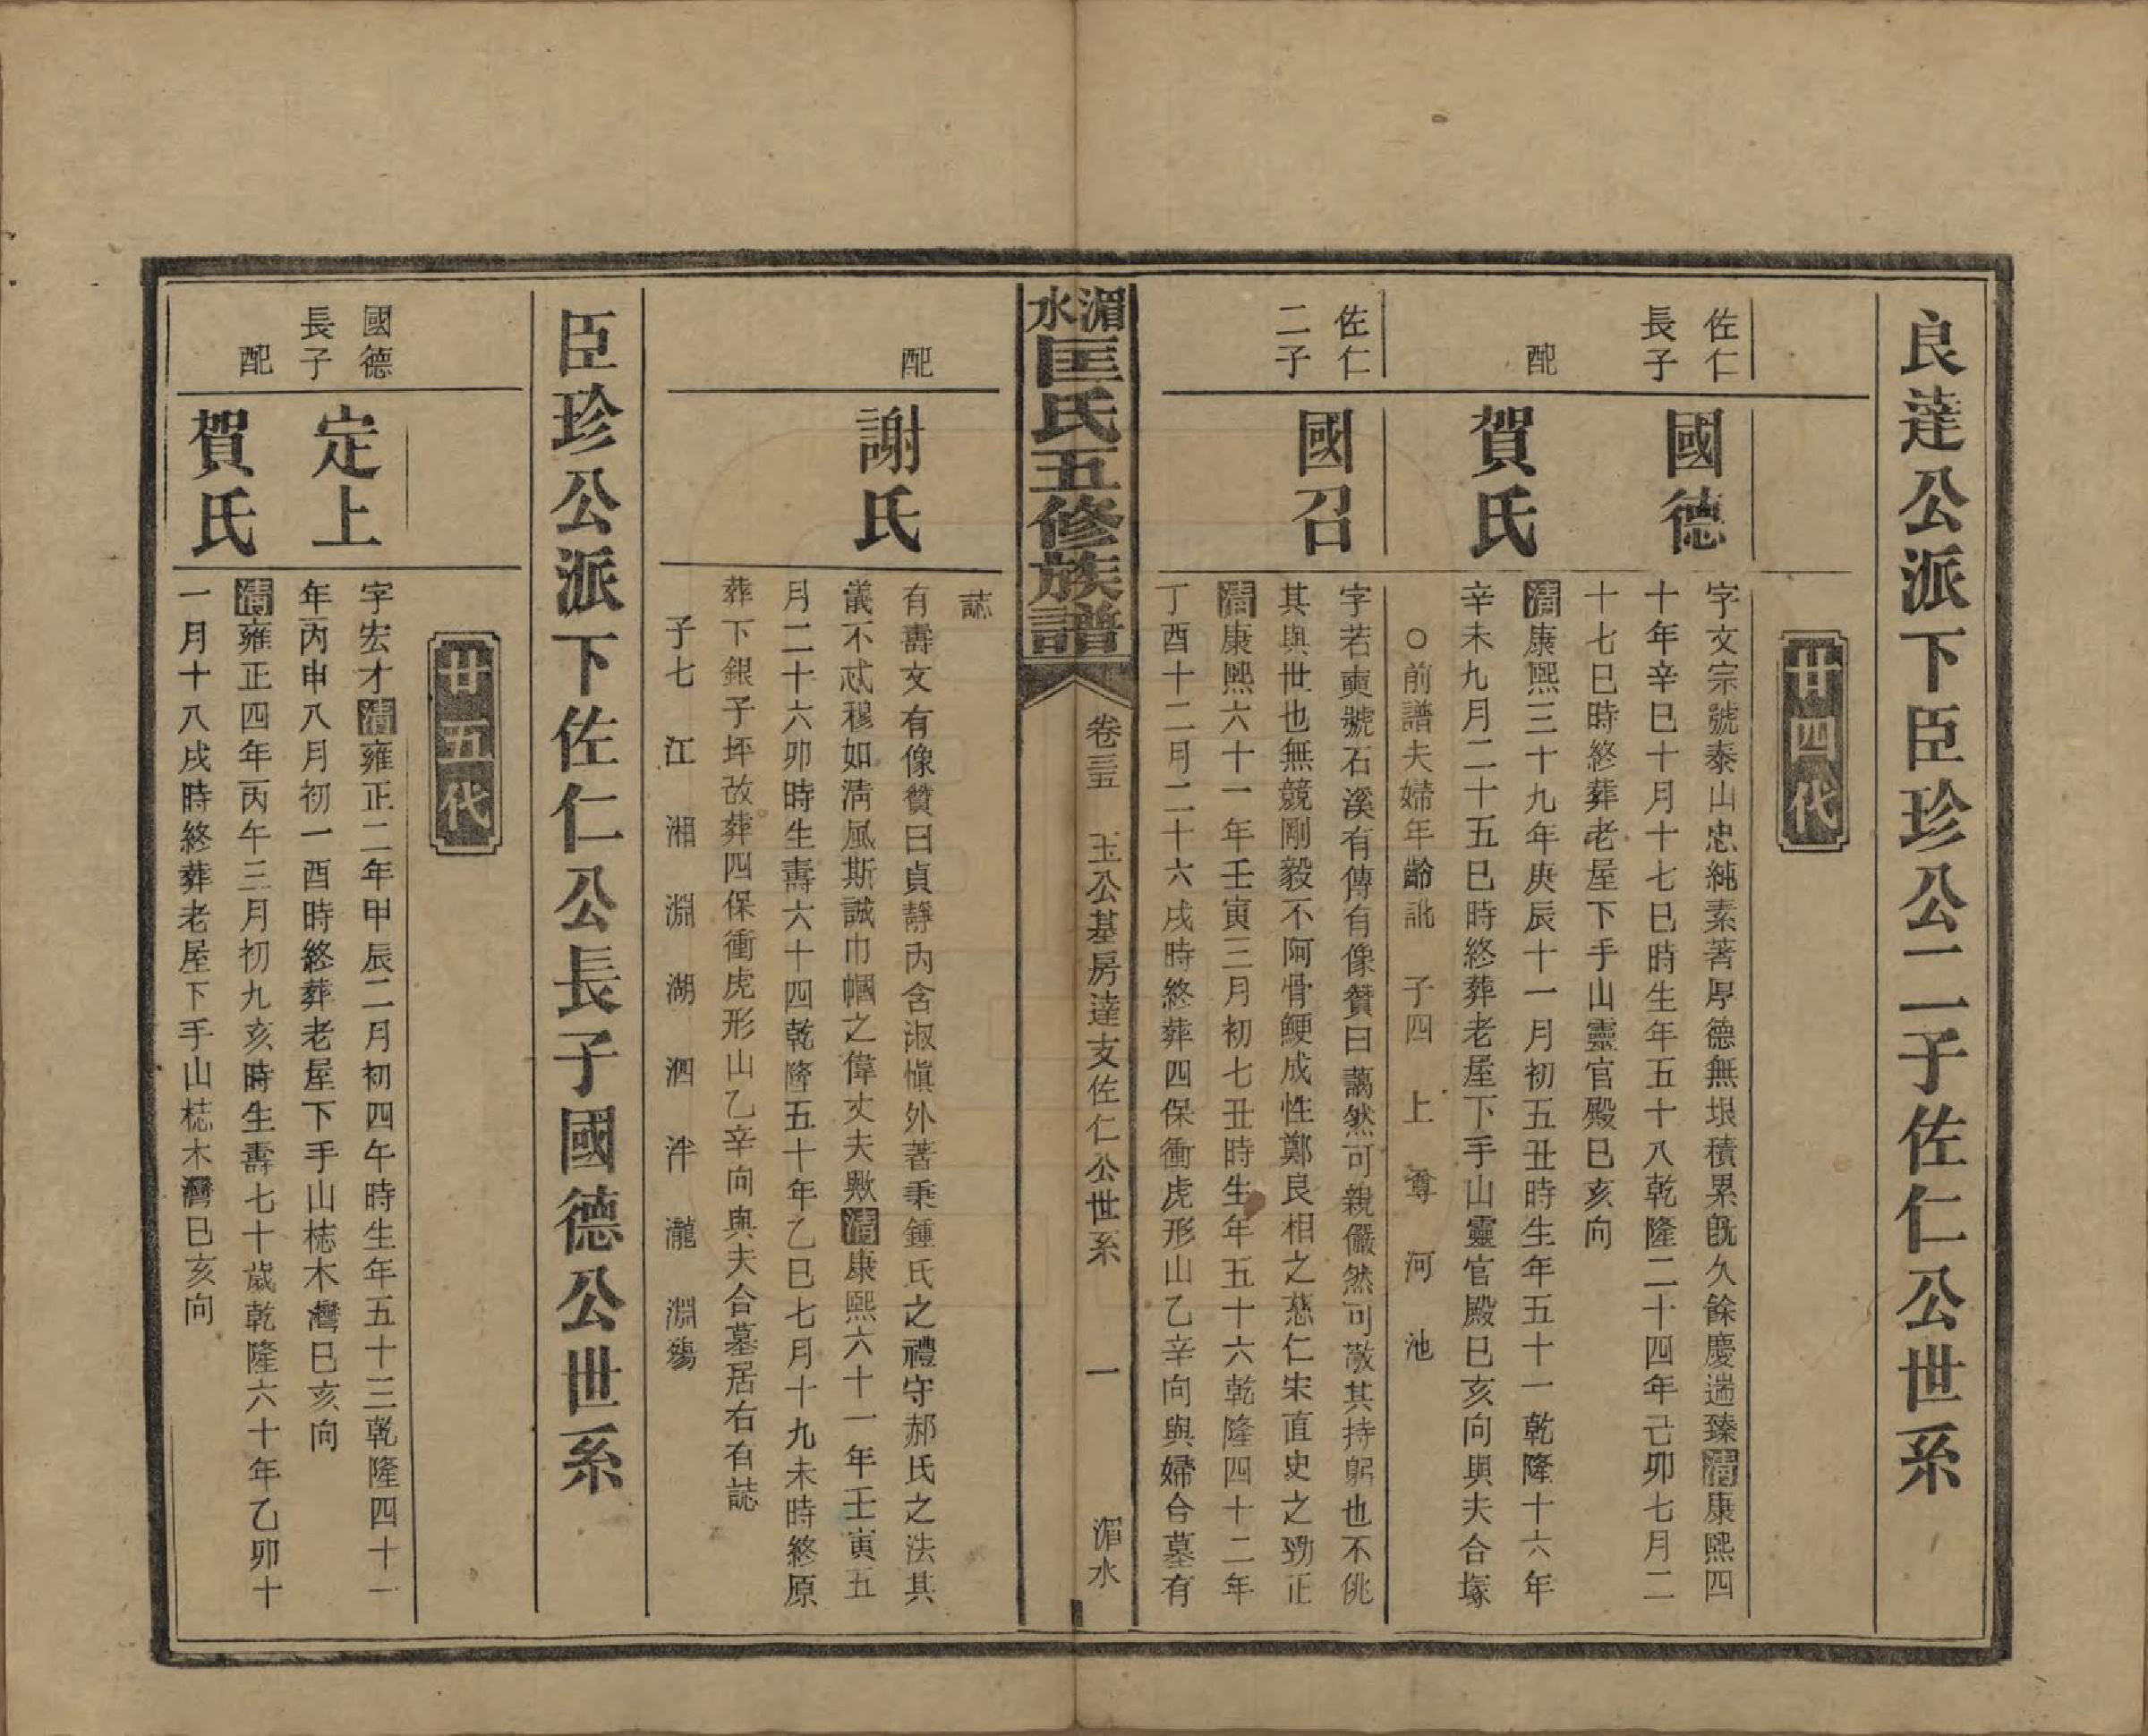 良達公派下臣珍公二子佐仁公世系
廿四代
佐仁
長子
國德
字文宗號泰山忠純素著厚德無垠積累既久餘慶遄臻清康熙四
十年辛巳十月十七巳時生年五十八乾隆二十四年己卯七月二
十七巳時終葬老屋下手山靈官殿巳亥向
配
賀氏
清康熙三十九年庚辰十一月初五丑時生年五十一乾隆十六年
辛未九月二十五巳時終葬老屋下手山靈官殿巳亥向與夫合塚
○前譜夫婦年齡訛 子四 上 尊 河 池
佐仁
二子
國召
字若奭號石溪有傳有像贊曰藹然可親儼然可敬其持躬也不佻
其與世也無競剛毅不阿骨鯁成性鄭良相之慈仁宋直史之勁正
清康熙六十一年壬寅三月初七丑時生年五十六乾隆四十二年
丁酉十二月二十六戌時終葬四保衝虎形山乙辛向與婦合墓有
湄水匡氏五修族譜
卷三五 玉公基房達支佐仁公世系 一 湄水
誌
配
謝氏
有壽文有像贊曰貞靜內含淑愼外著秉鍾氏之禮守郝氏之法其
儀不忒穆如清風斯誠巾幗之偉丈夫歟清康熙六十一年壬寅五
月二十六卯時生壽六十四乾隆五十年乙巳七月十九未時終原
葬下銀子坪故葬四保衝虎形山乙辛向與夫合墓居右有誌
子七 江 湘 淵 湖 泗 泮 瀧 淵殤
臣珍公派下佐仁公長子國德公世系
廿五代
國德
長子
定上
字宏才清雍正二年甲辰二月初四午時生年五十三乾隆四十一
年丙申八月初一酉時終葬老屋下手山梽木灣巳亥向
配
賀氏
清雍正四年丙午三月初九亥時生壽七十歲乾隆六十年乙卯十
一月十八戌時終葬老屋下手山梽木灣巳亥向